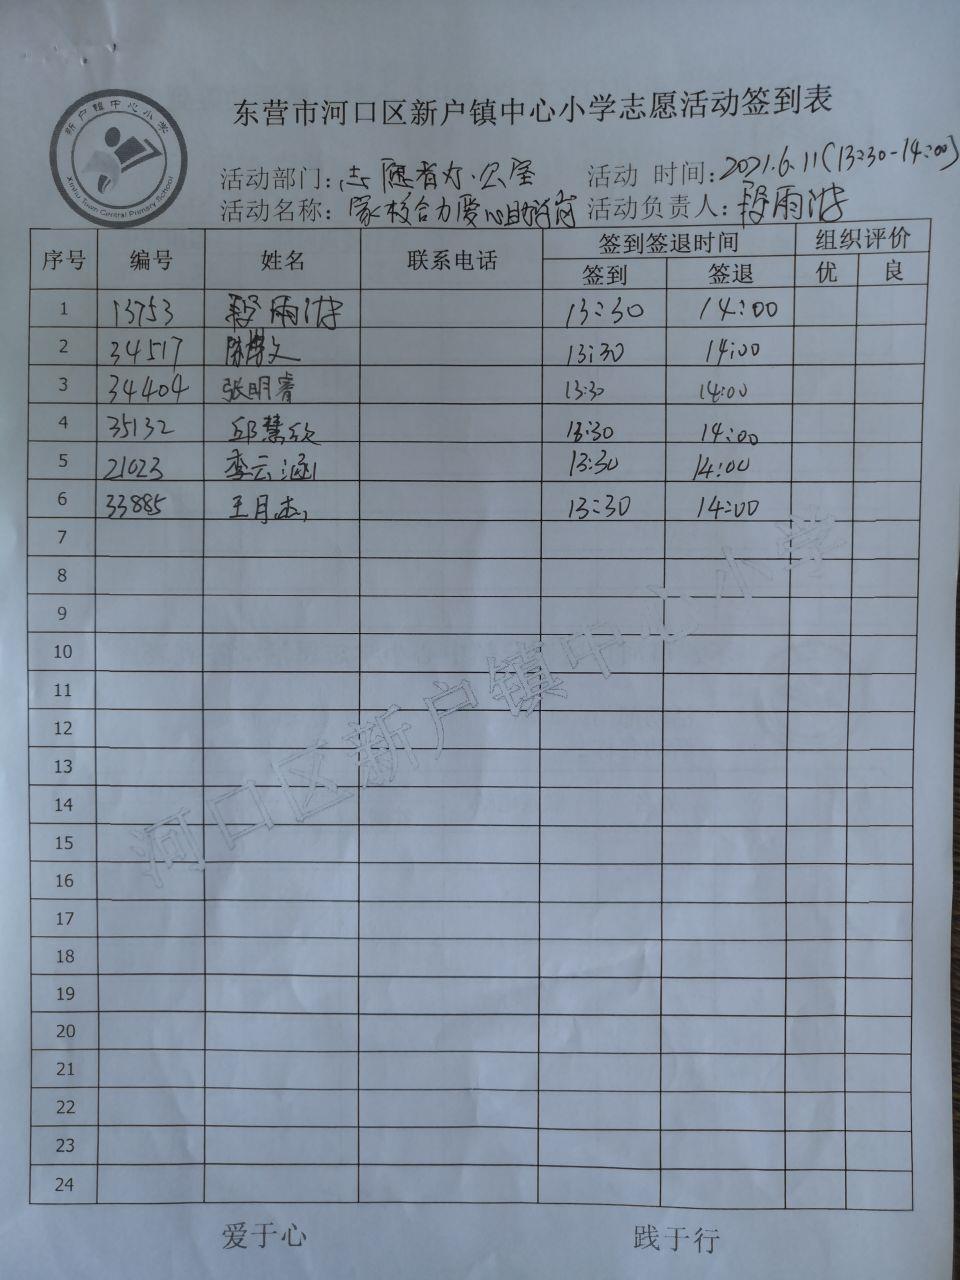 新户镇中心小学
Xinhu Town Central Primary School
东营市河口区新户镇中心小学志愿活动签到表
活动部门：志愿者办公室 活动 时间：2021.6.11(13:30-14:00)
活动名称：家校合力爱心助 活动负责人：段雨
序号 编号 姓名 联系电话 签到签退时间 组织评价
签到 签退 优 良
1 13753 段雨 13:30 14:00
2 34517 陈 文 13:30 14:00
3 34404 张明睿 13:30 14:00
4 35132 邱慧欣 13:30 14:00
5 21023 李云涵 13:30 14:00
6 33885 王月 13:30 14:00
7
8
9
10
11
12
13
14
15
16
17
18
19
20
21
22
23
24
河口区新户镇中心小学
爱于心 践于行